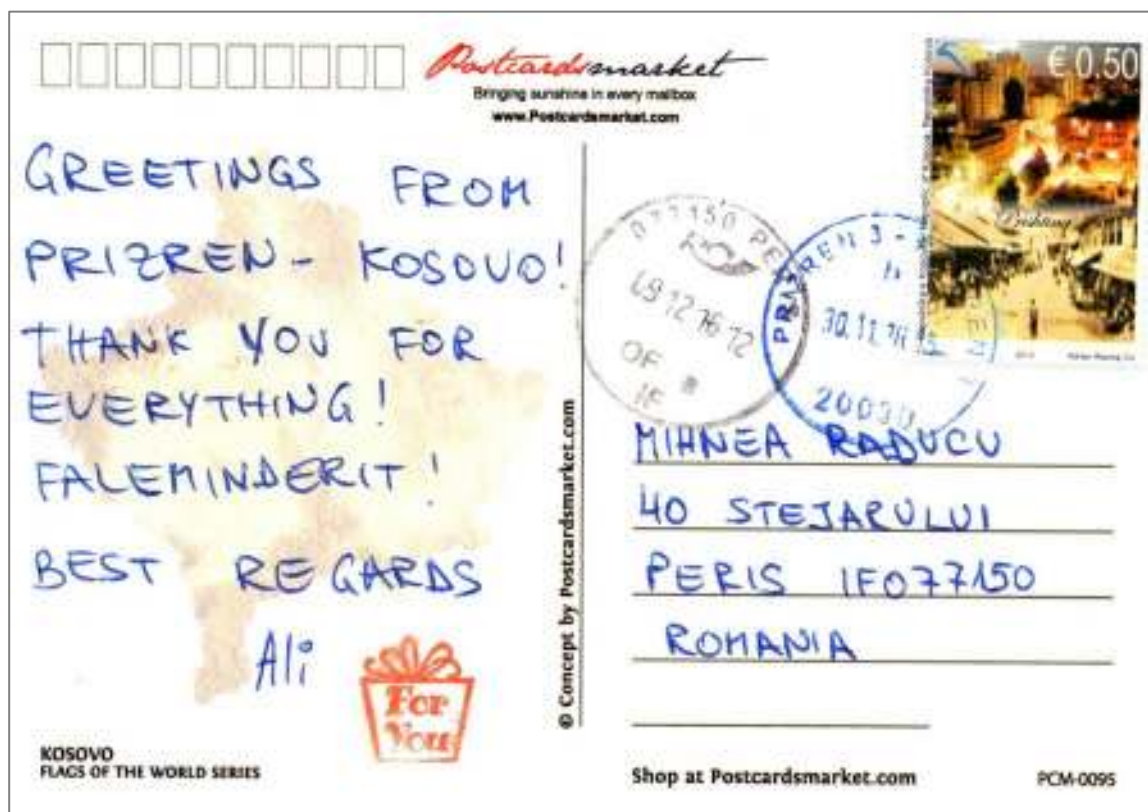 Postcardsmarket
Bringing sunshine in every mailbox
www.Postcardsmarket.com
€ 0.50
Prishtina
GREETINGS FROM
PRIZREN - KOSOVO!
THANK YOU FOR
EVERYTHING!
FALEMINDERIT!
BEST REGARDS
Ali
For
You
KOSOVO
FLAGS OF THE WORLD SERIES
© Concept by Postcardsmarket.com
077150
09 12 16 12
OF
IF
PRIZREN 3
30.11.16
20000
MIHNEA RADUCU
40 STEJARULUI
PERIS IF077150
ROMANIA
Shop at Postcardsmarket.com
PCM-0095